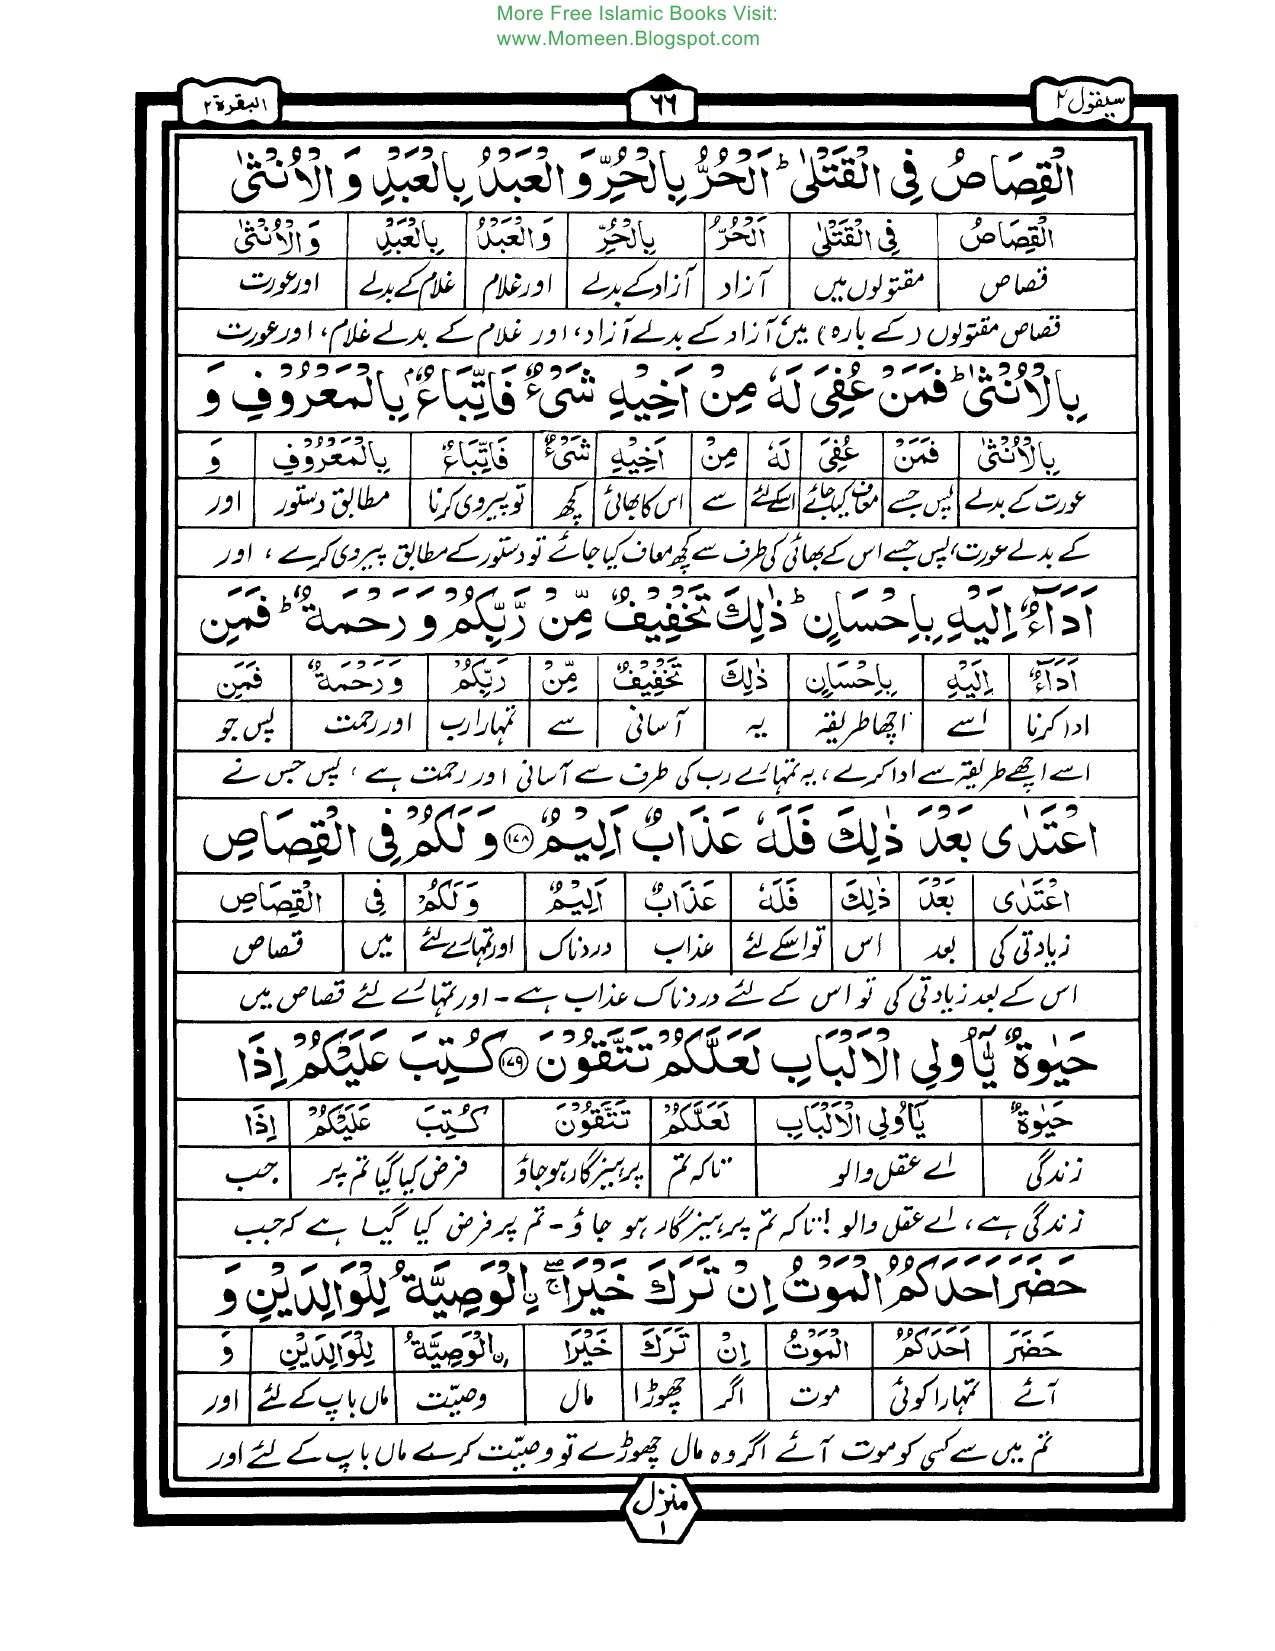 More Free Islamic Books Visit:
www.Momeen.Blogspot.com
سیقول ۲ ۶۶ البقرة ۲
الْقِصَاصُ فِي الْقَتْلٰى ؕ اَلْحُرُّ بِالْحُرِّ وَ الْعَبْدُ بِالْعَبْدِ وَ الْاُنْثٰى
الْقِصَاصُ فِي الْقَتْلٰى اَلْحُرُّ بِالْحُرِّ وَالْعَبْدُ بِالْعَبْدِ وَالْاُنْثٰى
قصاص مقتولوں میں آزاد آزاد کے بدلے اور غلام غلام کے بدلے اور عورت
قصاص مقتولوں (کے بارہ) میں، آزاد کے بدلے آزاد، اور غلام کے بدلے غلام، اور عورت
بِالْاُنْثٰى ؕ فَمَنْ عُفِيَ لَهٗ مِنْ اَخِيْهِ شَيْءٌ فَاتِّبَاعٌۢ بِالْمَعْرُوْفِ وَ
بِالْاُنْثٰى فَمَنْ عُفِيَ لَهٗ مِنْ اَخِيْهِ شَيْءٌ فَاتِّبَاعٌ بِالْمَعْرُوْفِ وَ
عورت کے بدلے پس جسے معاف کیا جائے اسکے لئے سے اس کا بھائی کچھ تو پیروی کرنا مطابق دستور اور
کے بدلے عورت، پس جسے اس کے بھائی کی طرف سے کچھ معاف کیا جائے تو دستور کے مطابق پیروی کرے، اور
اَدَآءٌ اِلَيْهِ بِاِحْسَانٍ ؕ ذٰلِكَ تَخْفِيْفٌ مِّنْ رَّبِّكُمْ وَ رَحْمَةٌ ؕ فَمَنِ
اَدَآءٌ اِلَيْهِ بِاِحْسَانٍ ذٰلِكَ تَخْفِيْفٌ مِّنْ رَبِّكُمْ وَرَحْمَةٌ فَمَنِ
ادا کرنا اسے اچھا طریقہ یہ آسانی سے تمہارا رب اور رحمت پس جو
اسے اچھے طریقہ سے ادا کرے، یہ تمہارے رب کی طرف سے آسانی اور رحمت ہے، پس جس نے
اعْتَدٰى بَعْدَ ذٰلِكَ فَلَهٗ عَذَابٌ اَلِيْمٌ ۝۱۷۸ وَ لَكُمْ فِي الْقِصَاصِ
اعْتَدٰى بَعْدَ ذٰلِكَ فَلَهٗ عَذَابٌ اَلِيْمٌ وَلَكُمْ فِي الْقِصَاصِ
زیادتی کی بعد اس تو اسکے لئے عذاب دردناک اور تمہارے لئے میں قصاص
اس کے بعد زیادتی کی تو اس کے لئے دردناک عذاب ہے۔ اور تمہارے لئے قصاص میں
حَيٰوةٌ يّٰۤاُولِي الْاَلْبَابِ لَعَلَّكُمْ تَتَّقُوْنَ ۝۱۷۹ كُتِبَ عَلَيْكُمْ اِذَا
حَيٰوةٌ يٰاُولِي الْاَلْبَابِ لَعَلَّكُمْ تَتَّقُوْنَ كُتِبَ عَلَيْكُمْ اِذَا
زندگی اے عقل والو تاکہ تم پرہیزگار ہو جاؤ فرض کیا گیا تم پر جب
زندگی ہے، اے عقل والو! تاکہ تم پرہیزگار ہو جاؤ۔ تم پر فرض کیا گیا ہے کہ جب
حَضَرَ اَحَدَكُمُ الْمَوْتُ اِنْ تَرَكَ خَيْرَا ۖۚ ۨالْوَصِيَّةُ لِلْوَالِدَيْنِ وَ
حَضَرَ اَحَدَكُمُ الْمَوْتُ اِنْ تَرَكَ خَيْرَا ۨالْوَصِيَّةُ لِلْوَالِدَيْنِ وَ
آئے تمہارا کوئی موت اگر چھوڑا مال وصیّت ماں باپ کے لئے اور
تم میں سے کسی کو موت آئے اگر وہ مال چھوڑے تو وصیّت کرے ماں باپ کے لئے اور
منزل ۱